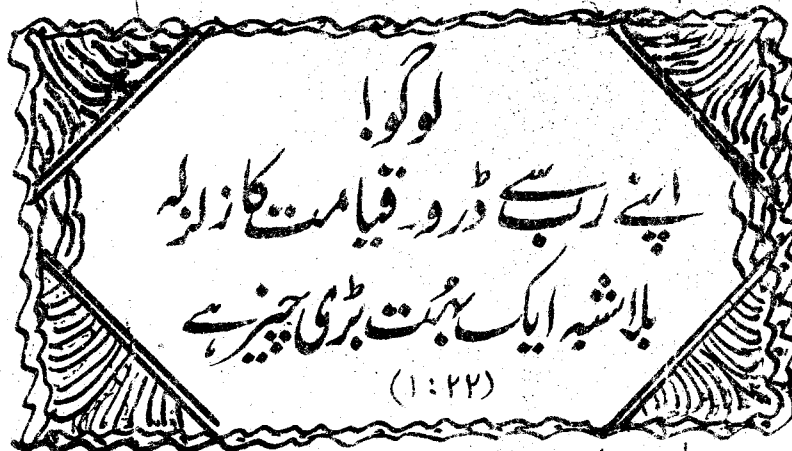 لوگو!
اپنے رب سے ڈرو۔ قیامت کا زلزلہ
بلاشبہ ایک بہُت بڑی چیز ہے
(۲۲:۱)